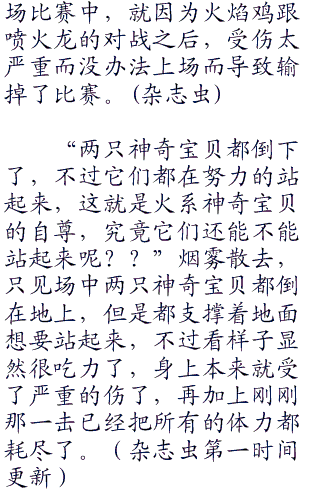 场比赛中，就因为火焰鸡跟
喷火龙的对战之后，受伤太
严重而没办法上场而导致输
掉了比赛。(杂志虫)
“两只神奇宝贝都倒下
了，不过它们都在努力的站
起来，这就是火系神奇宝贝
的自尊，究竟它们还能不能
站起来呢？？”烟雾散去，
只见场中两只神奇宝贝都倒
在地上，但是都支撑着地面
想要站起来，不过看样子显
然很吃力了，身上本来就受
了严重的伤了，再加上刚刚
那一击已经把所有的体力都
耗尽了。（杂志虫第一时间
更新）